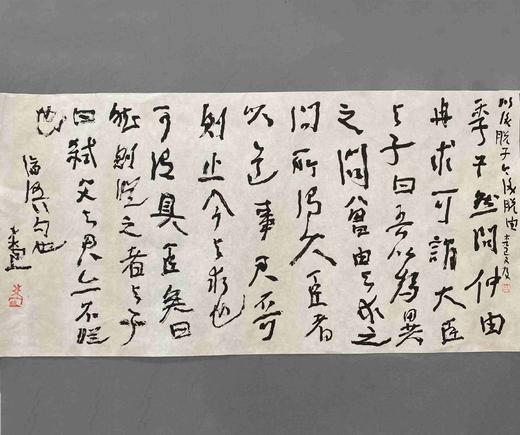 以後脱子今後脱由
季子然問仲由
冉求可謂大臣
与子曰吾以為異
之問曾由与求之
問所謂大臣者
以道事君不可
則止今与求也
可謂具臣矣曰
然則從之者与子
曰弑父与君亦不從
也
論語句也